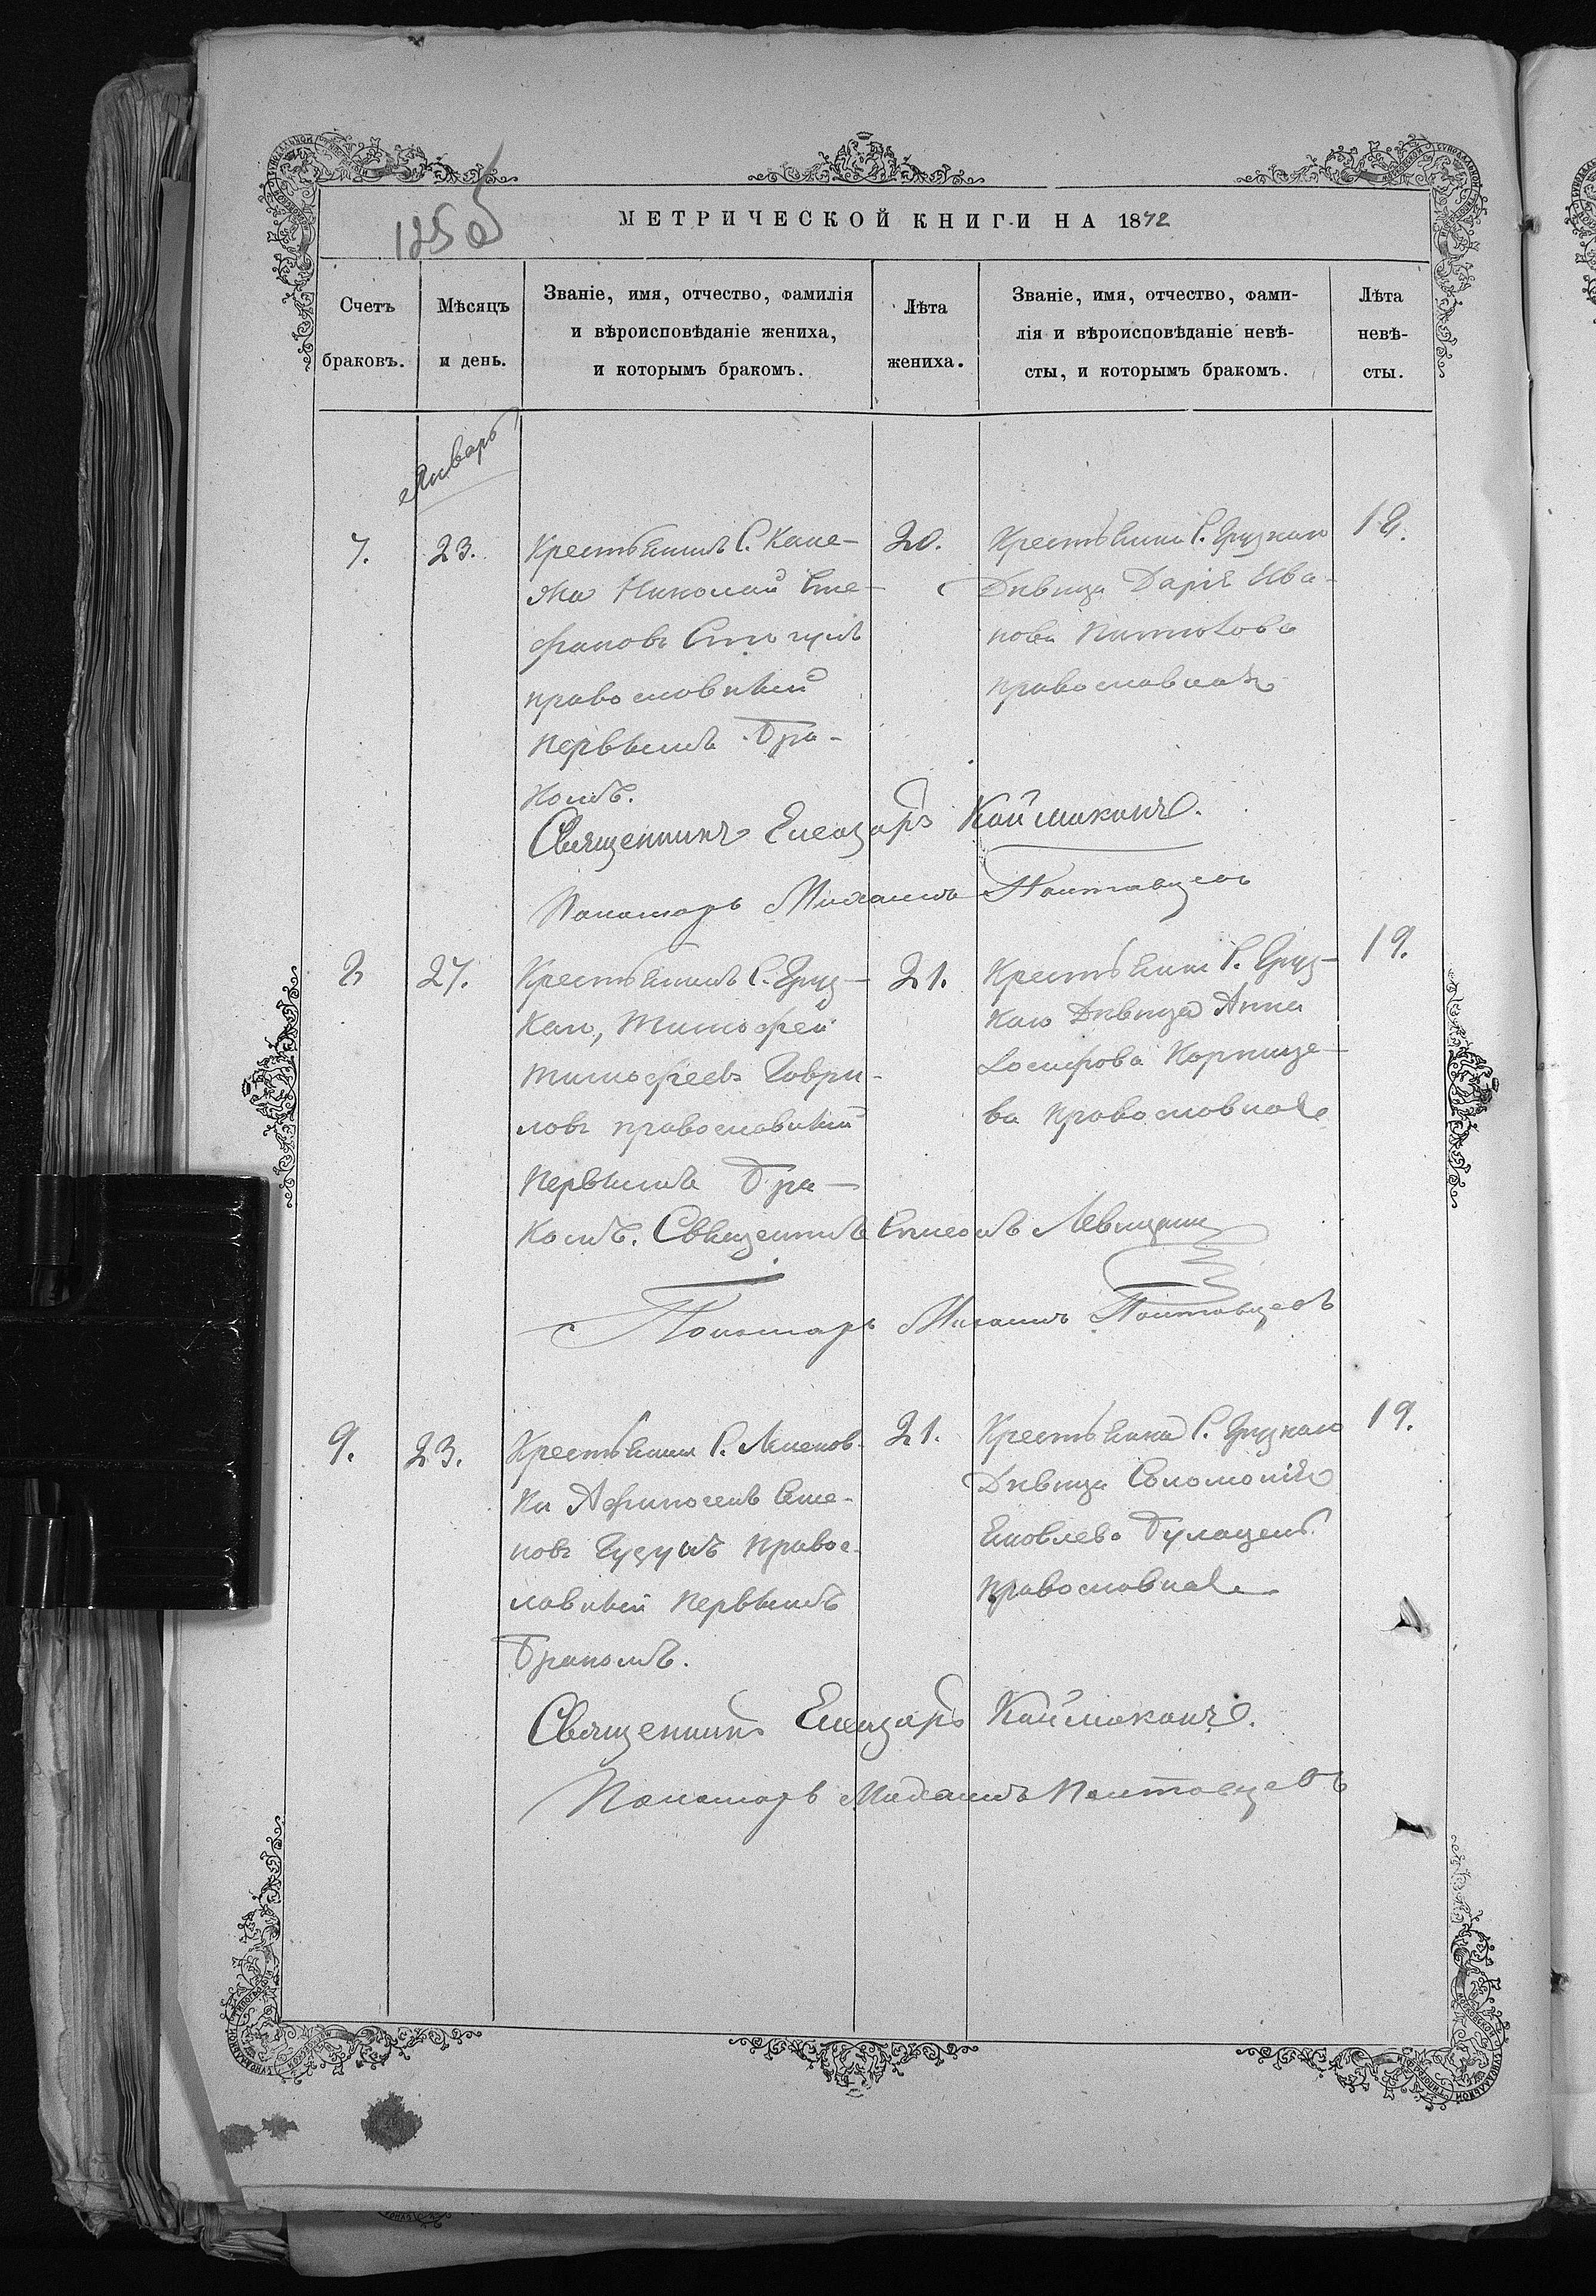 МЕТРИЧЕСКОЙ КНИГИ НА 1872
Счетъ браковъ.
Мѣсяцъ и день.
Званіе, имя, отчество, фамилія
и вѣроисповѣданіе жениха,
и которымъ бракомъ.
Лѣта жениха.
Званіе, имя, отчество, фами-
лія и вѣроисповѣданіе невѣ-
сты, и которымъ бракомъ.
Лѣта невѣ-
сты.
Январь
7.
23.
Крестьянинъ С.
Николай Сте-
фановъ
православный
первымъ бра-
комъ.
20.
Крестьянка С. Грузкаго
Дѣвица Дарія Ива-
нова
православная
18.
Священникъ Елеазаръ Каймаканъ.
Паламарь Михаилъ Полтавцевъ
8
27.
Крестьянинъ С. Груз-
каго, Тимофей
Тимофеевъ Гаври-
ловъ православный
первымъ бра-
комъ.
21.
Крестьянка С. Груз-
каго Дѣвица Анна
Іосифова
ва православная
19.
Священникъ Симеонъ Левицкій
Поламарь Михаилъ Полтавцевъ
9.
23.
Крестьянинъ С.
ки Сте-
повъ правос-
лавный первымъ
бракомъ.
21.
Крестьянка С. Грузкаго
Дѣвица Соломонія
Яковлева
православная
19.
Священникъ Елеазаръ Каймаканъ.
Паламарь Михаилъ Полтавцевъ